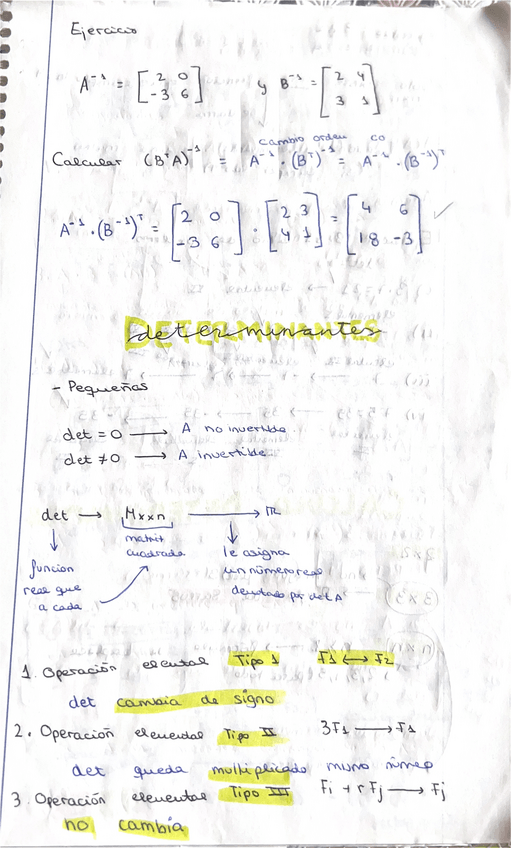 Ejercicio
A⁻¹ = [2 0; -3 6] y B⁻¹ = [2 4; 3 1]
cambio orden co
Calcular (BᵀA)⁻¹ = A⁻¹ · (Bᵀ)⁻¹ = A⁻¹ · (B⁻¹)ᵀ
A⁻¹ · (B⁻¹)ᵀ = [2 0; -3 6] · [2 3; 4 1] = [4 6; 18 -3] ✓
DETERMINANTES
determinantes
- Pequeñas
det = 0 → A no invertible
det ≠ 0 → A invertible
det → Mxxn → IR
matriz cuadrada
le asigna
un número real
denotado por det A
función
real que
a cada
1. Operación elemental Tipo 1 F1 ↔ F2
det cambia de signo
2. Operación elemental Tipo II 3F1 → F1
det queda multiplicado
3. Operación elemental Tipo III Fi + rFj → Fj
no cambia